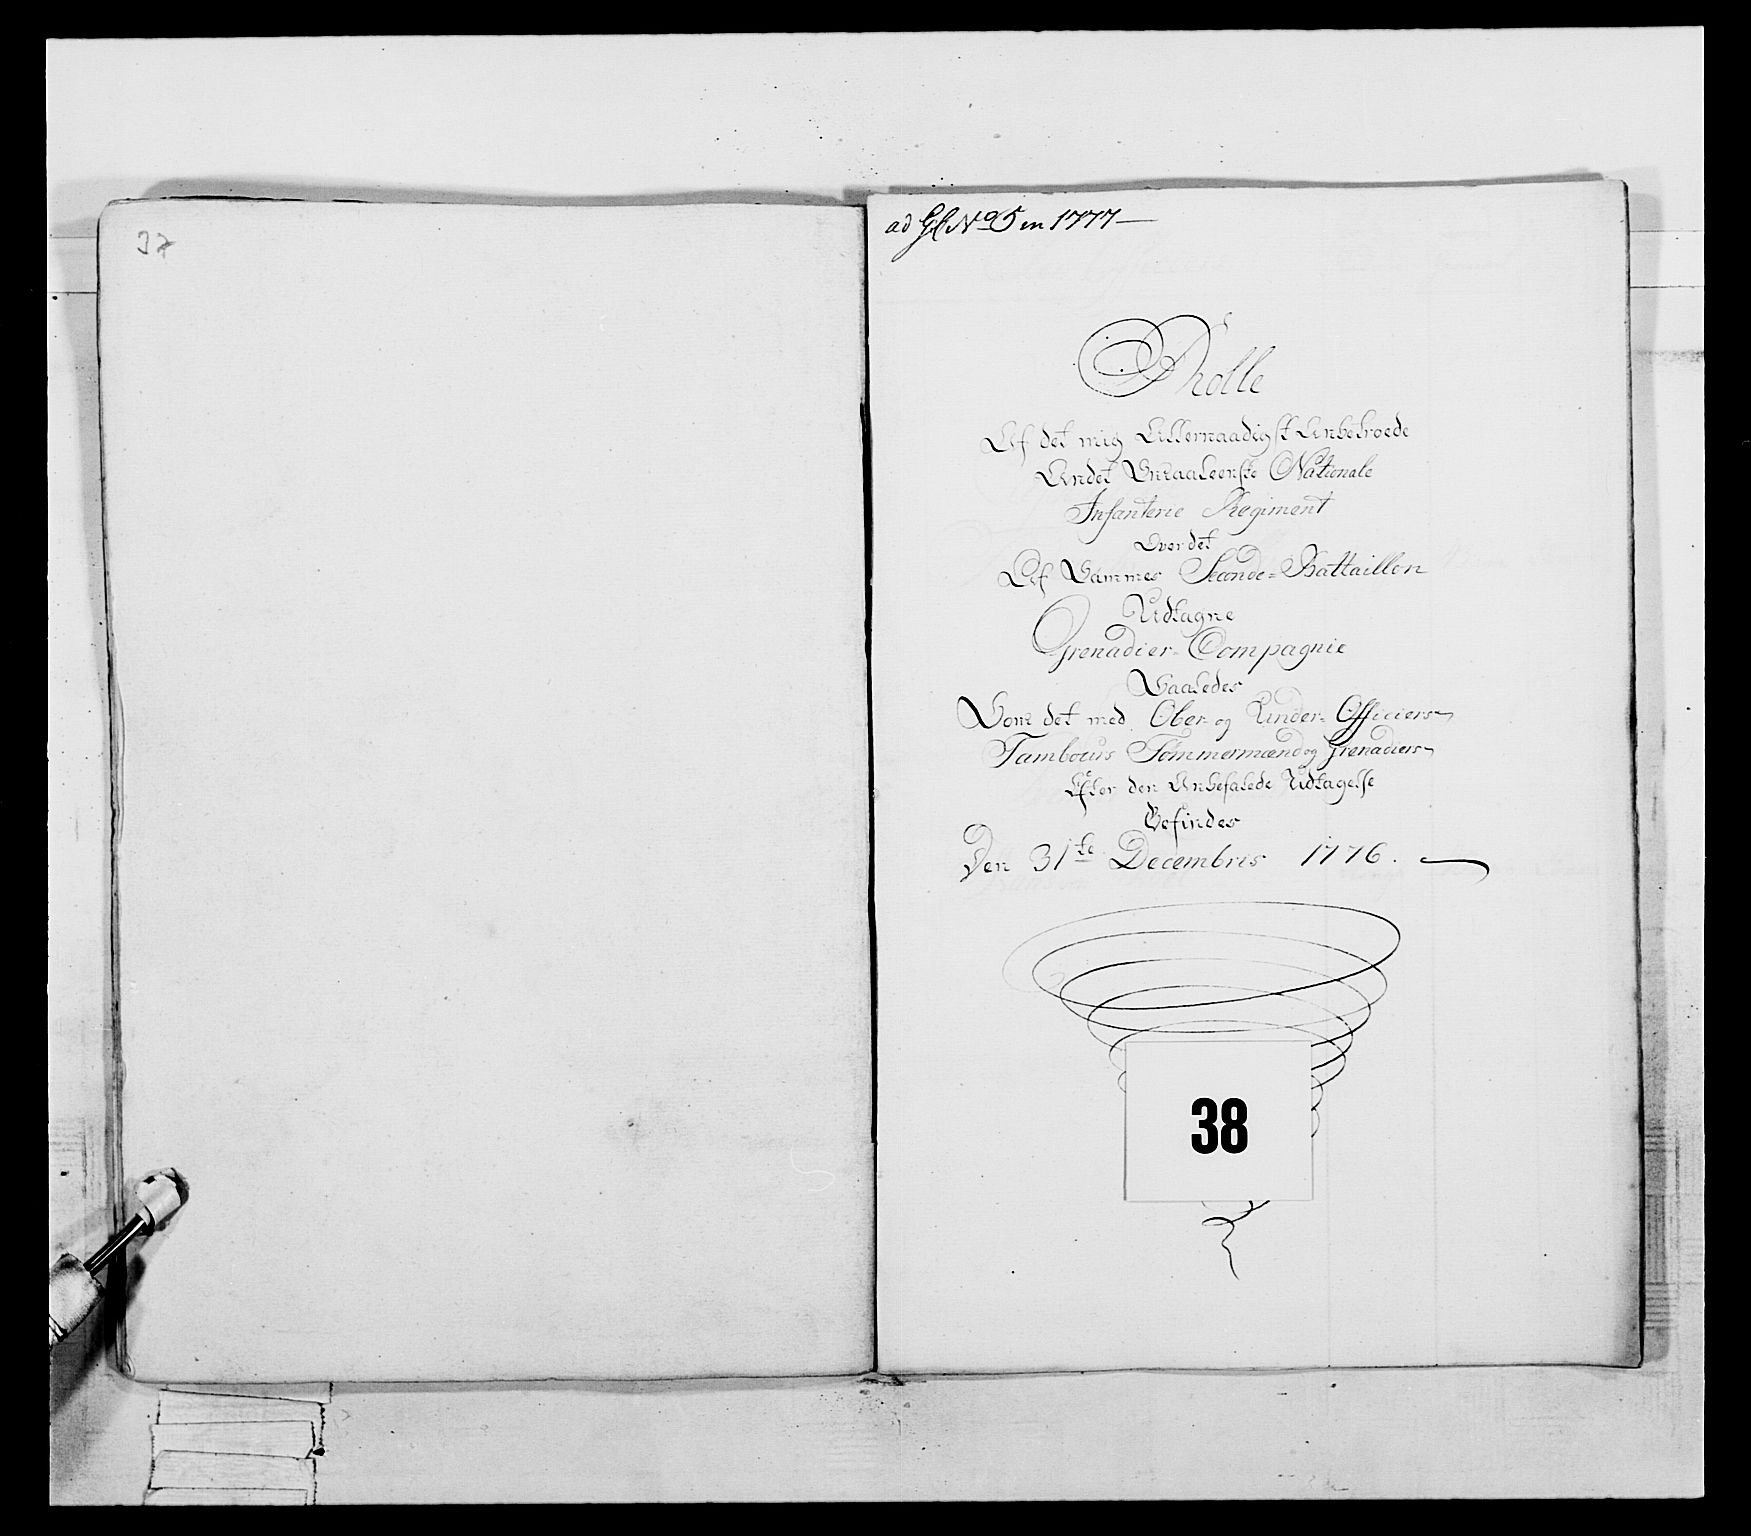 37
ad Gl No 5 in 1777
Rholle
Af det mig Allernaadigst Anbetroede
Andet Smaaleenske Nationale
Infanterie Regiment
Over det
Af Sammes Seconde-Battaillon
Udtagne
Grenadier-Compagnie
Saaledes
Som det med Ober- og Under-Officiers
Tambours Tømmermænd og Grenadiers
Efter den Anbefalede Udtagelse
Befindes
Den 31te Decembris 1776.
38